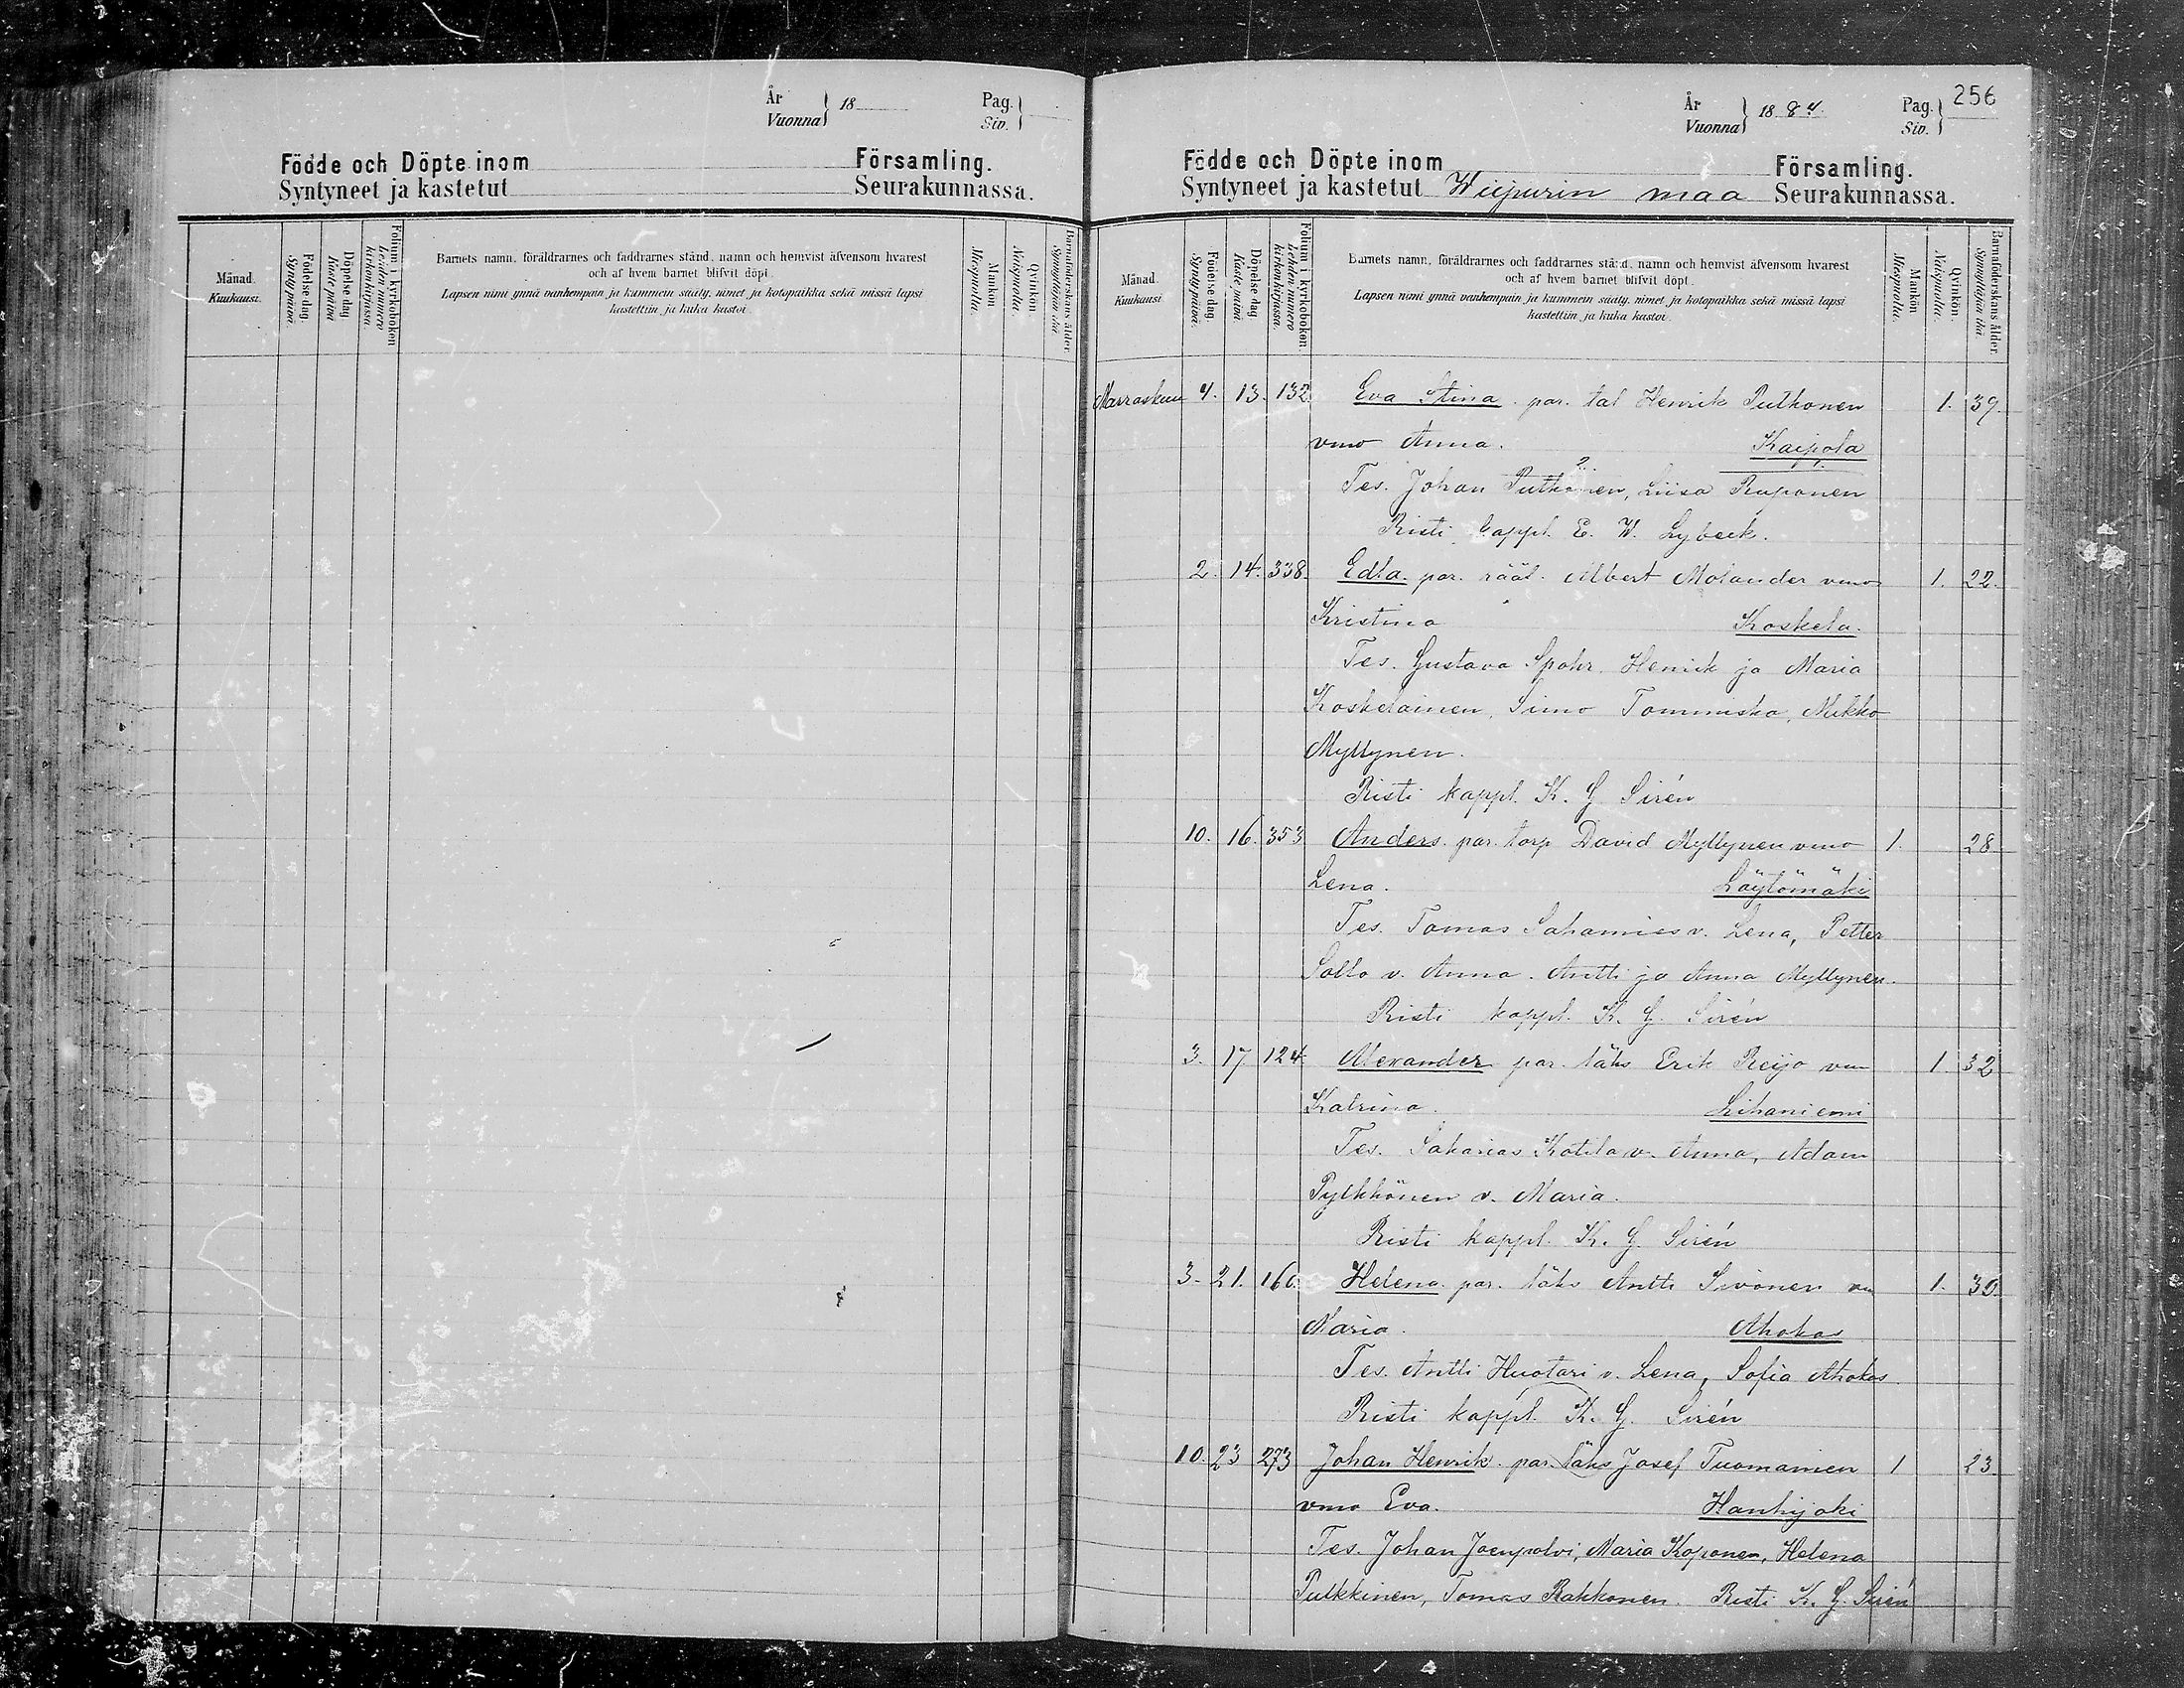 År
Vuonna } 18
Pag.
Siv. }
Födde och Döpte inom Församling.
Syntyneet ja kastetut Seurakunnassa.
Månad.
Kuukausi.
Födelse dag.
Synty päivä.
Döpelse dag
Kaste päivä
Folium i kyrkoboken
Lehden numero
kirkonkirjassa
Barnets namn, föräldrarnes och faddrarnes stånd, namn och hemvist äfvensom hvarest
och af hvem barnet blifvit döpt.
Lapsen nimi ynnä vanhempain ja kummein sääty, nimet ja kotopaikka sekä missä lapsi
kastettiin ja kuka kastoi.
Mankön
Miespuolia.
Qvinkön
Naispuolia.
Barnaföderskans ålder.
Synnyttäjän ikä.
256
År
Vuonna } 1884.
Pag.
Siv. }
Födde och Döpte inom Församling.
Syntyneet ja kastetut Wiipurin maa Seurakunnassa.
Månad.
Kuukausi
Födelse dag.
Synty päivä.
Döpelse dag
Kaste päivä
Folium i kyrkoboken.
Lehden numero
kirkonkirjassa.
Barnets namn, föräldrarnes och faddrarnes stånd, namn och hemvist äfvensom hvarest
och af hvem barnet blifvit döpt.
Lapsen nimi ynnä vanhempain ja kummein sääty, nimet ja kotopaikka sekä missä lapsi
kastettiin ja kuka kastoi.
Mankön
Miespuolia.
Qvinkön.
Naispuolia.
Barnaföderskans ålder.
Synnyttäjän ikä.
Marraskuu 4. 13. 132 Eva Stina. par. tal Henrik Putkonen 1. 39.
vmo Anna. Kaipola
Tes. Johan Putkonen, Liisa Ruponen
Risti kappl. E. W. Lybeck.
2. 14. 338. Edla. par. räät. Albert Molander vmo 1. 22.
Kristina Koskela.
Tes. Gustava Spohr. Henrik ja Maria
Koskelainen, Simo Tommiska, Mikko
Myllynen.
Risti kappl. K. G. Sirén
10. 16. 353 Anders. par. torp David Myllynen vmo 1. 28
Lena. Löytömäki
Tes. Tomas Sahamies v. Lena, Petter
Sallo v. Anna. Antti ja Anna Myllynen.
Risti kappl. K. G. Sirén
3. 17 124. Alexander par. läks Erik Reijo vm 1. 32
Katrina. Lihaniemi
Tes. Sakarias Kotila v. Anna, Adam
Pylkkönen v. Maria.
Risti kappl. K. G. Sirén
3. 21. 160. Helena par. läks Antti Sivonen vm 1. 30.
Maria. Ahokas
Tes. Antti Huotari v. Lena, Sofia Ahokas.
Risti kappl. K. G. Sirén
10. 23 273 Johan Henrik. par. läks Josef Tuomainen 1 23.
vmo Eva. Hanhijoki
Tes. Johan Joenpolvi, Maria Koponen, Helena
Pulkkinen, Tomas Rahkonen. Risti K. G. Sirén